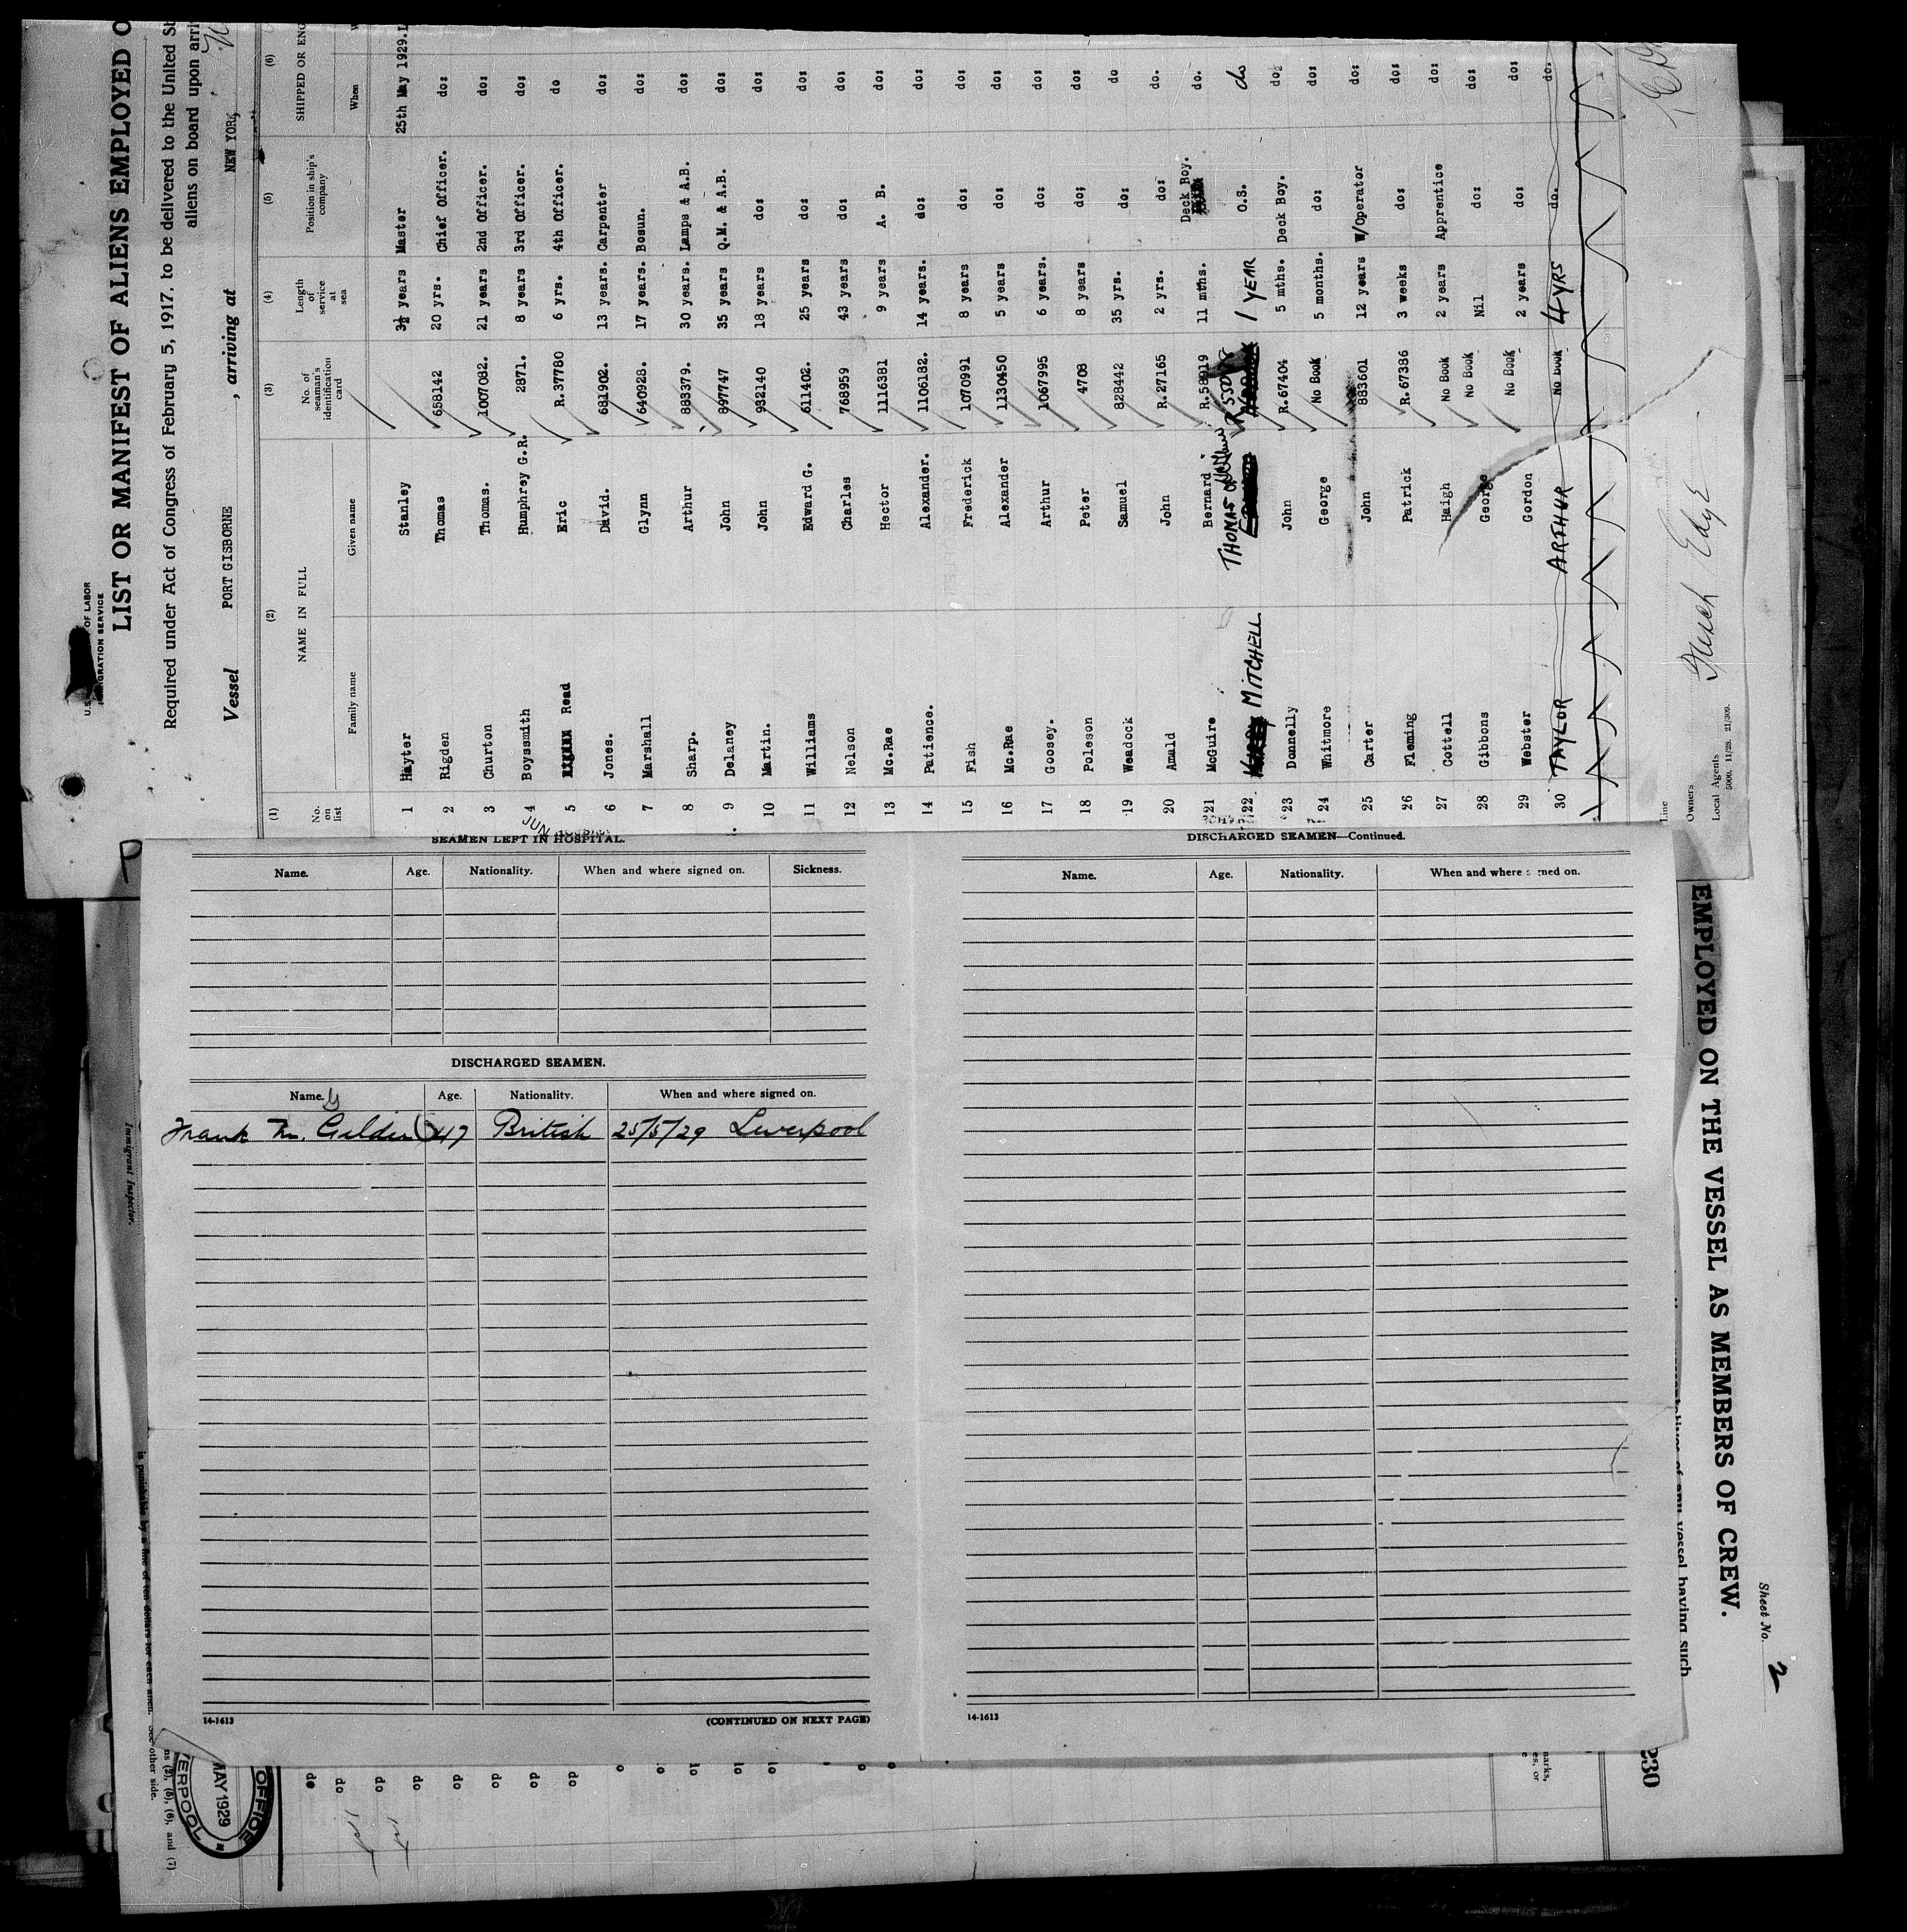 U.S. OF LABOR
IMMIGRATION SERVICE
LIST OR MANIFEST OF ALIENS EMPLOYED O
Required under Act of Congress of February 5, 1917, to be delivered to the United St
aliens on board upon arri
Vessel PORT GISBORNE, arriving at NEW YORK,
(1) (2) (3) (4) (5) (6)
No. on list NAME IN FULL Family name Given name No. of seaman's identification card Length of service at sea Position in ship's company SHIPPED OR ENG When
1 Hayter Stanley 3½ years Master 25th May 1929.L
2 Rigden Thomas 658142 20 yrs. Chief Officer. do:
3 Churton Thomas. 1007082. 21 years 2nd Officer. do:
4 Boyssmith Humphrey G.R. 2871. 8 years 3rd Officer. do:
5 Read Eric R.37780 6 yrs. 4th Officer. do
6 Jones. David. 681902. 13 years. Carpenter do:
7 Marshall Glynn 640928. 17 years. Bosun. do:
8 Sharp. Arthur 883379. 30 years. Lamps & A.B. do:
9 Delaney John 897747 35 years Q.M. & A.B. do:
10 Martin. John 932140 18 years do: do:
11 Williams Edward G. 611402. 25 years do: do:
12 Nelson Charles 768959 43 years do: do:
13 Mc.Rae Hector 1116381 9 years A. B. do:
14 Patience. Alexander. 1106182. 14 years. do: do:
15 Fish Frederick 1070991 8 years do: do:
16 Mc.Rae Alexander 1130450 5 years do: do:
17 Goosey. Arthur 1067995 6 years. do: do:
18 Poleson Peter 4708 8 years do: do:
19 Weadock Samuel 828442 35 yrs. do: do
20 Amald John R.27165 2 yrs. do: do.
21 McGuire Bernard R.58919 11 mths. Deck Boy. do.
22 MITCHELL THOMAS 1 YEAR O.S. do
23 Donnelly John R.67404 5 mths. Deck Boy. do:
24 Whitmore George No Book 5 months. do: do:
25 Carter John 883601 12 years W/Operator do:
26 Fleming Patrick R.67386 3 weeks do: do:
27 Cottell Haigh No Book 2 years Apprentice do:
28 Gibbons George No Book Nil do: do:
29 Webster Gordon No Book 2 years do: do:
30 TAYLOR ARTHUR No Book 4 YRS do. do.
Line
Owners
Local Agents
5000. 11/28. 21/309.
SEAMEN LEFT IN HOSPITAL.
Name. Age. Nationality. When and where signed on. Sickness.
DISCHARGED SEAMEN.
Name. Age. Nationality. When and where signed on.
Frank M. Gilder 47 British 25/5/29 Liverpool
14-1613 (CONTINUED ON NEXT PAGE)
DISCHARGED SEAMEN—Continued.
Name. Age. Nationality. When and where signed on.
14-1613
EMPLOYED ON THE VESSEL AS MEMBERS OF CREW.
Sheet No. 2
of any vessel having such
Immigrant Inspector.
is punishable by a fine of ten dollars for each alien. See other side.
ns (2), (5), (6), and (7)
OFFICE
MAY 1929
ERPOOL
230
marks,
es, or
do
do
do
do
do
do
do
do